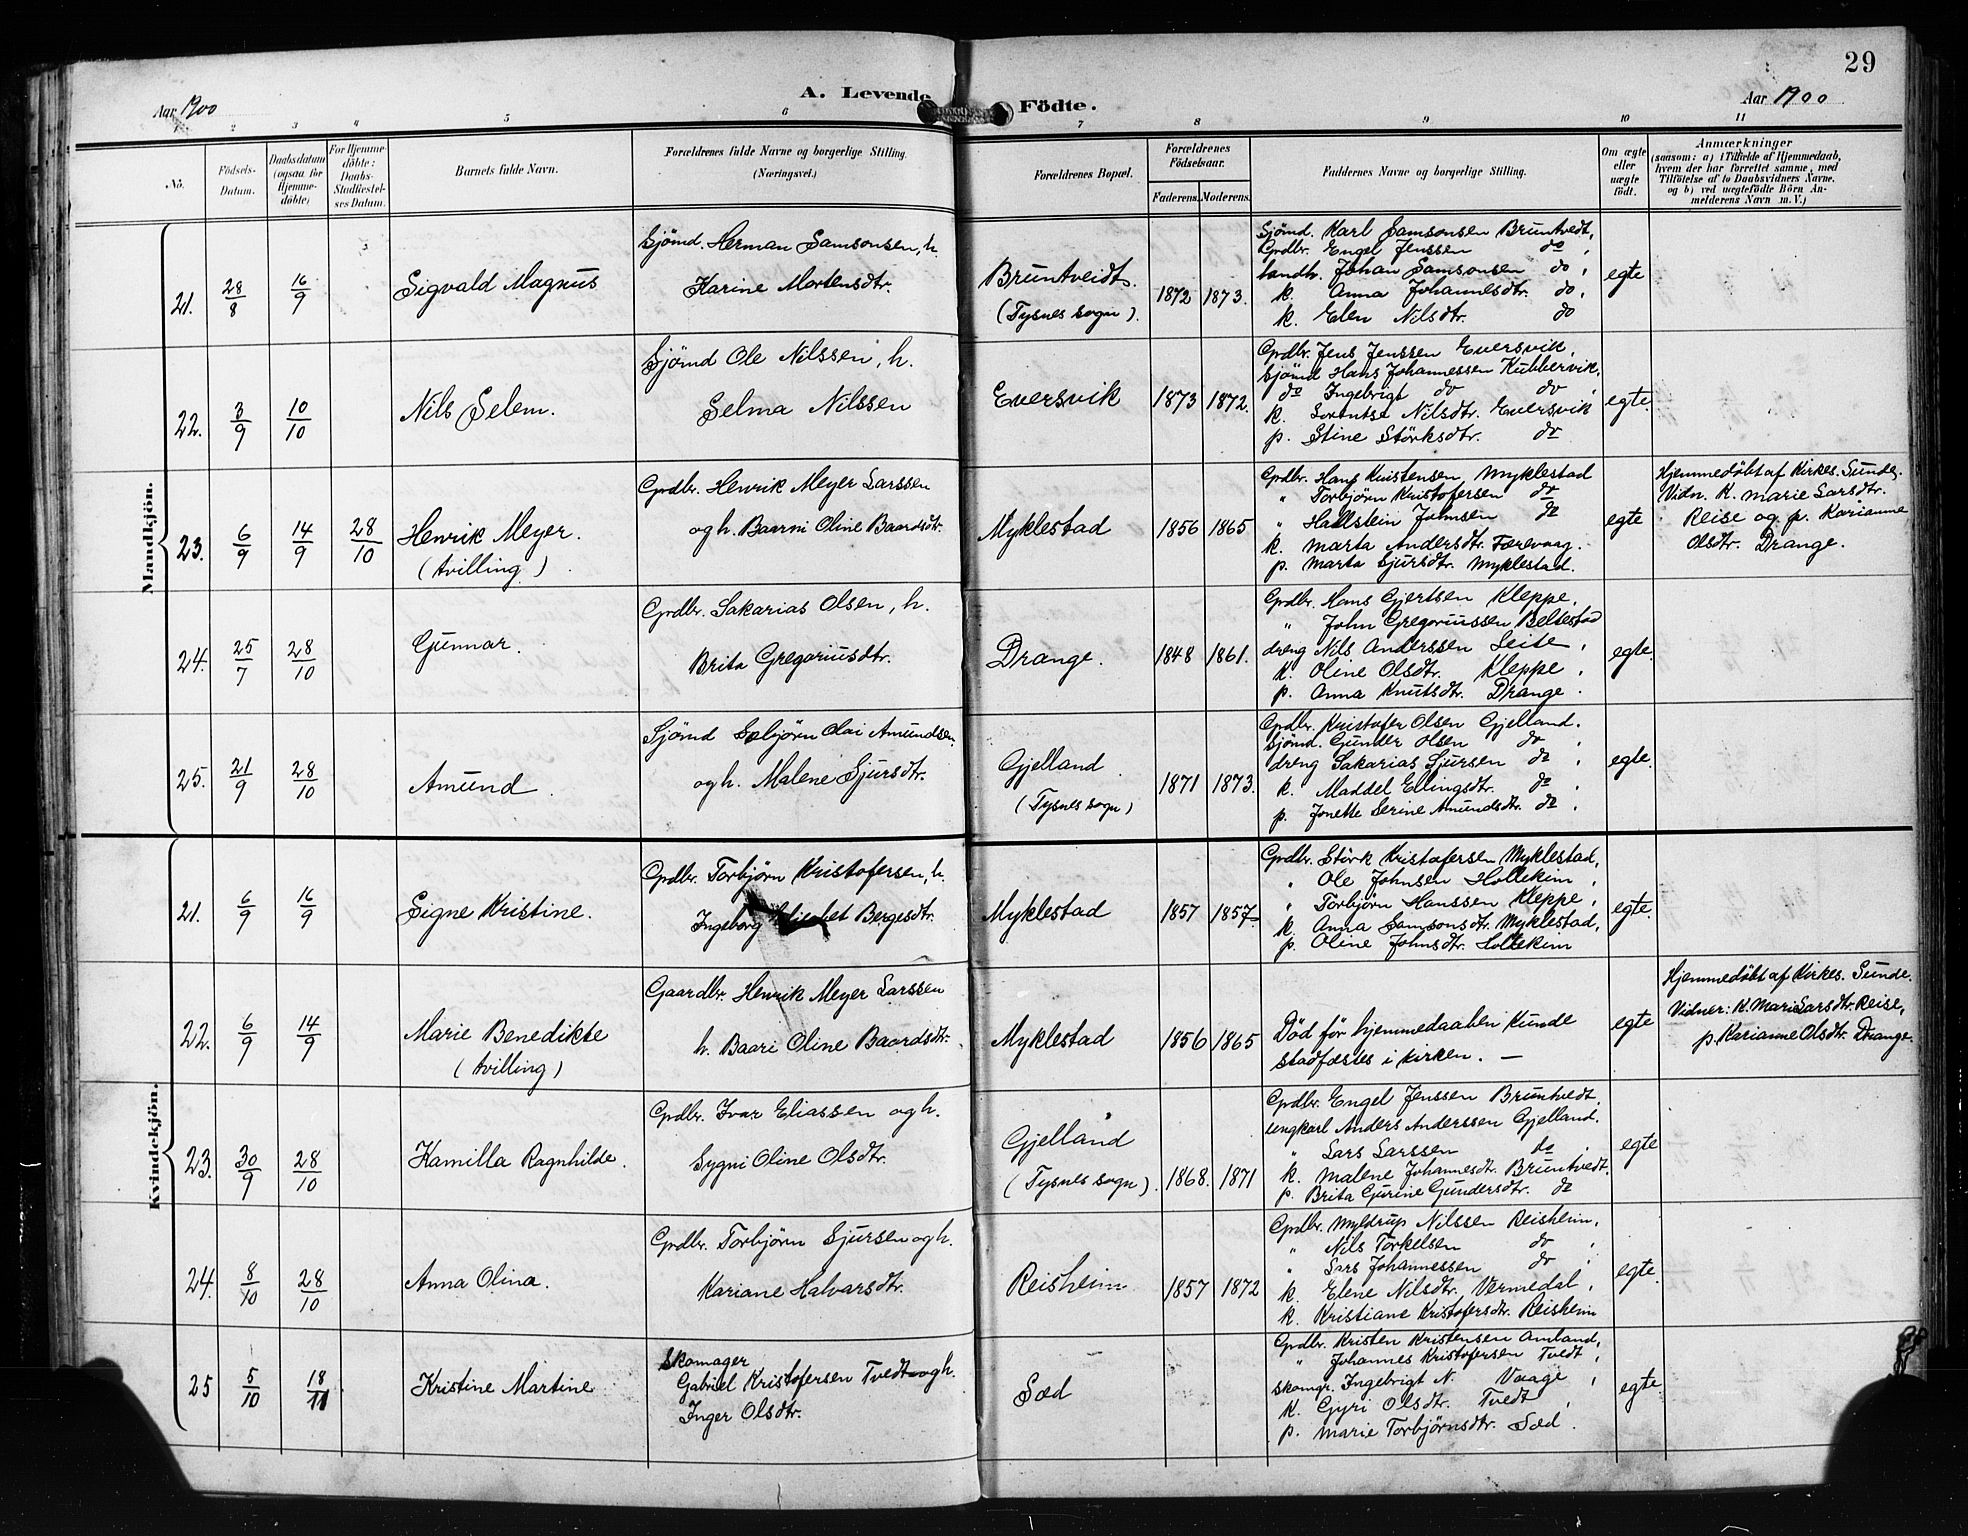 29
Aar 1900
A. Levende Födte.
Aar 1900
1 2 3 4 5 6 7 8 9 10 11
No.
Födsels-Datum.
Daabsdatum (ogsaa for Hjemmedöbte)
For Hjemmedöbte: Daabs-Stadfæstelses Datum.
Barnets fulde Navn.
Forældrenes fulde Navne og borgerlige Stilling.
(Næringsvei.)
Forældrenes Bopæl.
Forældrenes Födselsaar.
Faderens. Moderens.
Faddernes Navne og borgerlige Stilling.
Om ægte eller uægte födt.
Anmærkninger
(saasom: a) i Tilfælde af Hjemmedaab, hvem der har forrettet samme, med Tilföielse af to Daabsvidners Navne. og b) ved uægtefödte Börn Anmelderens Navn m. V.)
Mandkjön.
21. 28/8 16/9 Sigvald Magnus
Sjömd. Herman Samsonsen, h.
Karine Mortensdtr.
Bruntveidt.
(Tysnes sogn).
1872 1873.
Sjömd. Karl Samsonsen Bruntvedt,
Grdbr. Engel Jenssen do,
landh. Johan Samsonsen do,
k. Anna Johannesdtr. do,
k. Elen Nilsdtr. do
egte
22. 3/9 10/10 Nils Selem.
Sjömd Ole Nilssen, h.
Selma Nilssen
Eversvik
1873 1872.
Grdbr. Jens Jenssen Eversvik,
sjömd Hans Johannessen Kubbervik,
do Ingebrigt do do,
k. Sorentse Nilsdtr. Eversvik
p. Stine Störksdtr. do
egte.
23. 6/9 14/9 28/10 Henrik Meyer.
(tvilling)
Grdbr. Henrik Meyer Larssen
og h. Baarni Oline Baardsdtr.
Myklestad
1856 1865
Grdbr. Hans Kristensen Myklestad
" Torbjörn Kristofersen do
" Hallstein Johnsen do
k. Marta Andersdtr. Færevaag.
p. Marta Sjursdtr. Myklestad.
egte
Hjemmedöbt af Kirkes. Sunde,
Vidn. K. Marie Larsdtr.
Reise og p. Karianne
Olsdtr. Drange.
24. 25/7 28/10 Gunnar.
Grdbr. Sakarias Olsen, h.
Brita Gregoriusdtr.
Drange.
1848 1861.
Grdbr. Hans Gjertsen Kleppe,
" John Gregoriussen Beltestad
dreng Nils Anderssen Leite,
k. Oline Olsdtr. Kleppe,
p. Anna Knutsdtr. Drange.
egte.
25. 21/9 28/10 Amund.
Sjömd Esbjörn Olai Amundsen
og h. Malene Sjursdtr.
Gjelland.
(Tysnes sogn)
1871 1873.
Grdbr. Kristofer Olsen Gjelland.
sjömd. Gunder Olsen do,
dreng Sakarias Sjursen do,
k. Maddel Ellingsdtr. do,
p. Jonette Serine Amundsdtr. do,
egte.
Kvindekjön.
21. 6/9 16/9 Signe Kristine.
Grdbr. Torbjörn Kristofersen, h.
Ingeborg Bergesdtr.
Myklestad
1857 1857
Grdbr. Störk Kristofersen Myklestad,
" Ole Johnsen Hollekim,
" Torbjörn Hanssen Kleppe,
k. Anna Samsonsdtr. Myklestad,
p. Oline Johnsdtr. Hollekim
egte.
22. 6/9 14/9 Marie Benedikte
(tvilling)
Gaardbr. Henrik Meyer Larssen
h. Baari Oline Baardsdtr.
Myklestad
1856 1865
Död för hjemmedaaben kunde
stadfæstes i kirken. —
egte
Hjemmedöbt af Kirkes. Sunde.
Vidner: K. Marie Larsdtr Reise,
p. Karianne Olsdtr. Drange.
23. 30/9 28/10 Kamilla Ragnhilde.
Grdbr. Ivar Eliassen og h.
Sygni Oline Olsdtr.
Gjelland
(Tysnes sogn).
1868. 1871
Grdbr. Engel Jenssen Bruntvedt,
ungkarl Anders Anderssen Gjelland.
" Lars Larssen do,
k. Malene Johannesdtr. Bruntvedt.
p. Brita Gurine Gundersdtr. do
egte
24. 8/10 28/10 Anna Olina.
Grdbr. Torbjörn Sjursen og h.
Kariane Halvarsdtr.
Reisheim
1857 1872
Grdbr. Myldrup Nilssen Reisheim,
" Nils Torkelsen do,
" Lars Johannessen do,
k. Elene Nilsdtr. Vermedal,
k. Kristiane Kristofersdtr. Reisheim
egte.
25 5/10 18/11 Kristine Martine
Skomager
Gabriel Kristofersen Tvedt og h.
Inger Olsdtr.
Sæd
Grdbr. Kristen Kristensen Amland,
" Johannes Kristofersen Tvedt,
skomgr. Ingebrigt N. Vaage,
k. Gyri Olsdtr. Tvedt,
p. Marie Torbjörnsdtr. Sæd.
egte.